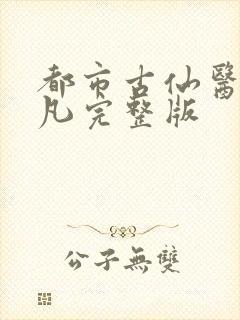 都市古仙醫
凡完整版
公子無雙